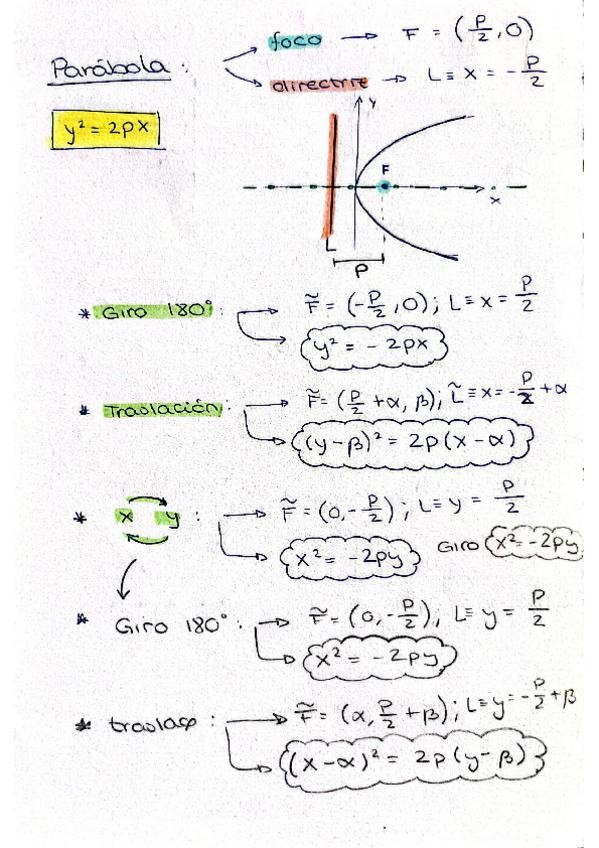 foco → F = (P/2, 0)
Parábola:
directriz → L ≡ x = -P/2
y² = 2px
y
F
x
L
P
* Giro 180°: → F̃ = (-P/2, 0); L ≡ x = P/2
y² = -2px
* Traslación: → F̃ = (P/2 + α, β); L̃ ≡ x = -P/2 + α
(y-β)² = 2p(x-α)
* x y : → F̃ = (0, -P/2); L ≡ y = P/2
x² = -2py Giro x² = -2py
* Giro 180°: → F̃ = (0, -P/2); L ≡ y = P/2
x² = -2py
* traslaº: → F̃ = (α, P/2 + β); L ≡ y = -P/2 + β
(x-α)² = 2p(y-β)